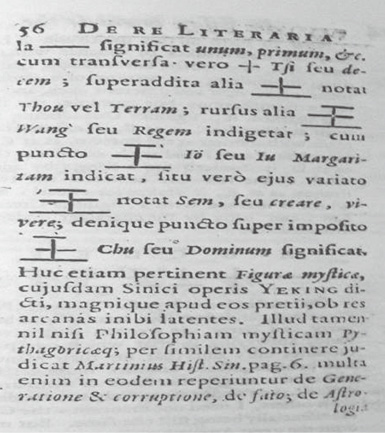 56 DE RE LITERARIA
la — ſignificat unum, primum, &c.
cum tranſverſa vero 十 Tſi ſeu de-
cem; ſuperaddita alia 土 notat
Thou vel Terram; rurſus alia 王
Wang ſeu Regem indigetar; cum
puncto 玉 Iö ſeu Iu Margari-
tam indicat, ſitu verò ejus variato
生 notat Sem, ſeu creare, vi-
vere; denique puncto ſuper impoſito
主 Chu ſeu Dominum ſignificat.
Huc etiam pertinent Figuræ myſticæ,
cujuſdam Sinici operis YEKING di-
cti, magnique apud eos pretii, ob res
arcanas inibi latentes. Illud tamen
nil niſi Philoſophiam myſticam Py-
thagoricæq; per ſimilem continere ju-
dicat Martinius Hiſt. Sin. pag. 6. multa
enim in eodem reperiuntur de Gene-
ratione & corruptione, de fato; de Aſtro-
logia